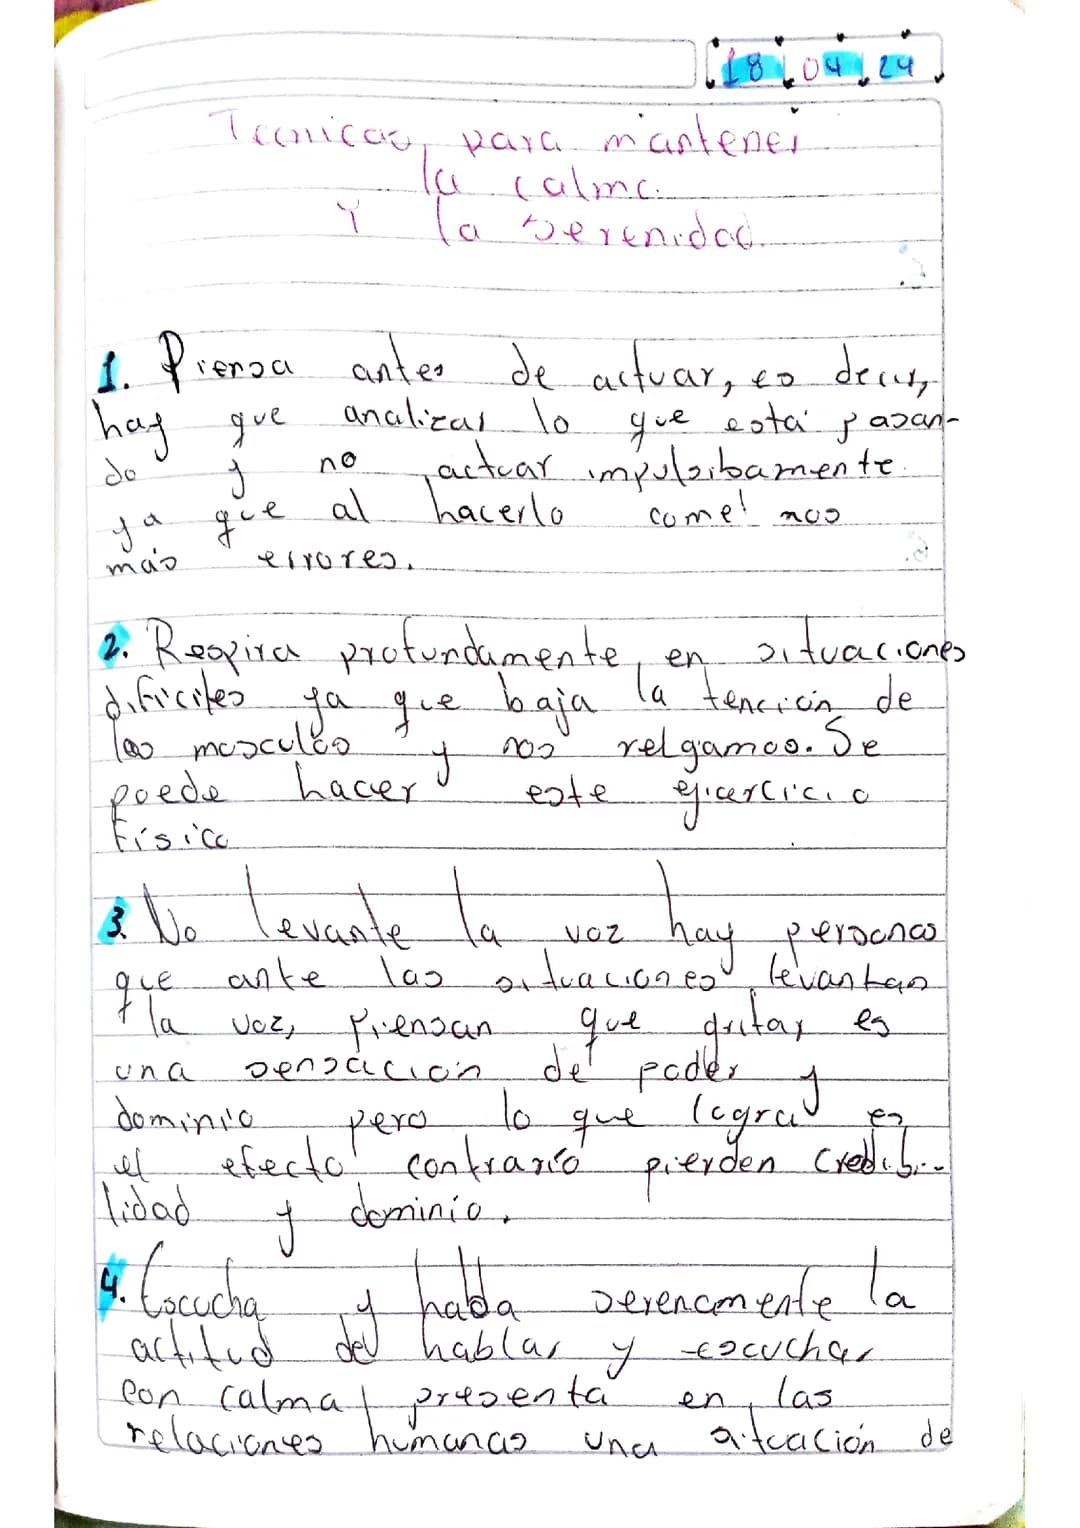 18 04 24
Tecnicas para mantener
la calma.
Y la serenidad.
1. Piensa antes de actuar, es decir,
hay que analizar lo que está pasan-
do y no actuar impulsibamente.
ya que al hacerlo come! nos
más errores.
2. Respira profundamente, en situaciones
dificiles ya que baja la tención de
los musculos y nos relgamos. Se
puede hacer este ejicercicio
Físico
3. No levante la voz hay personas
que ante las situaciones levantan
la voz, Piensan que gritar es
una sensación de poder y
dominio pero lo que logra es
el efecto contrario pierden Credibi-
lidad y dominio.
4. Escucha y habla serenamente la
actitud de hablar y escuchar
con calma presenta en las
relaciones humanas una situación de